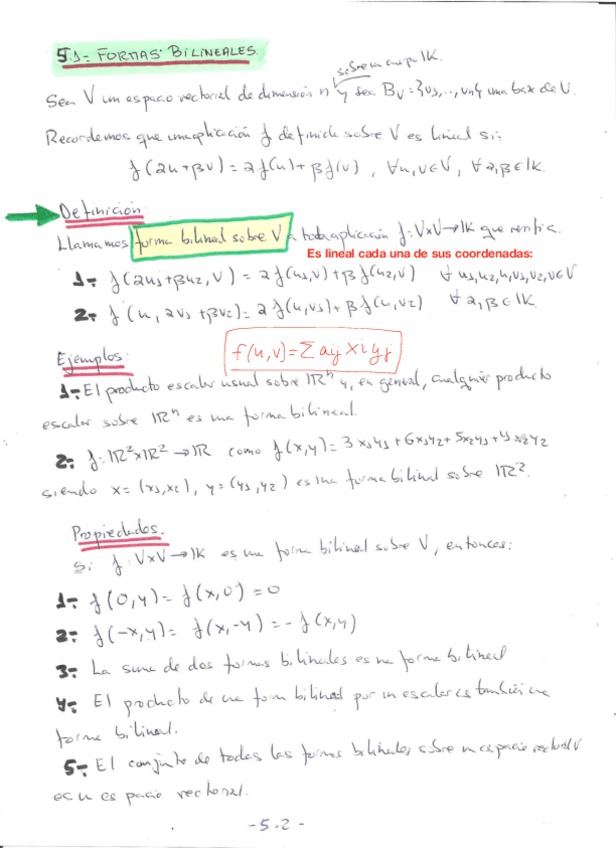 5.1- FORMAS BILINEALES.
sobre un cuerpo IK.
Sea V un espacio vectorial de dimensión n y sea Bv = {v1,..,vn} una base de V.
Recordemos que una aplicación f definida sobre V es lineal si:
f(αu+βv) = αf(u)+βf(v), ∀u,v∈V, ∀α,β∈IK.
Definición
Llamamos forma bilineal sobre V a toda aplicación f: V×V→IK que verifica.
Es lineal cada una de sus coordenadas:
1- f(αu1+βu2,V) = αf(u1,v)+βf(u2,v) ∀ u1,u2,u,v1,v2,v∈V
2- f(u,αv1+βv2) = αf(u,v1)+βf(u,v2) ∀α,β∈IK.
f(u,v)=Σ aij xi yj
Ejemplos:
1- El producto escalar usual sobre IRⁿ y, en general, cualquier producto
escalar sobre IRⁿ es una forma bilineal.
2- f: IR²×IR²→IR como f(x,y) = 3x1y1+6x1y2+5x2y1+4x2y2
siendo x=(x1,x2), y=(y1,y2) es una forma bilineal sobre IR².
Propiedades.
Si f: V×V→IK es una forma bilineal sobre V, entonces:
1- f(0,y) = f(x,0) = 0
2- f(-x,y) = f(x,-y) = -f(x,y)
3- La suma de dos formas bilineales es una forma bilineal
4- El producto de una forma bilineal por un escalar es también una
forma bilineal.
5- El conjunto de todas las formas bilineales sobre un espacio vectorial V
es un espacio vectorial.
-5.2-